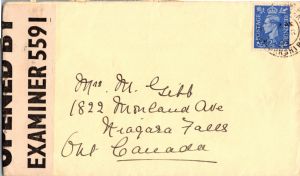 OPENED BY
EXAMINER 5591
POSTAGE
Mrs. M. Gibb
1822 Monland Ave
Niagara Falls
Ont Canada